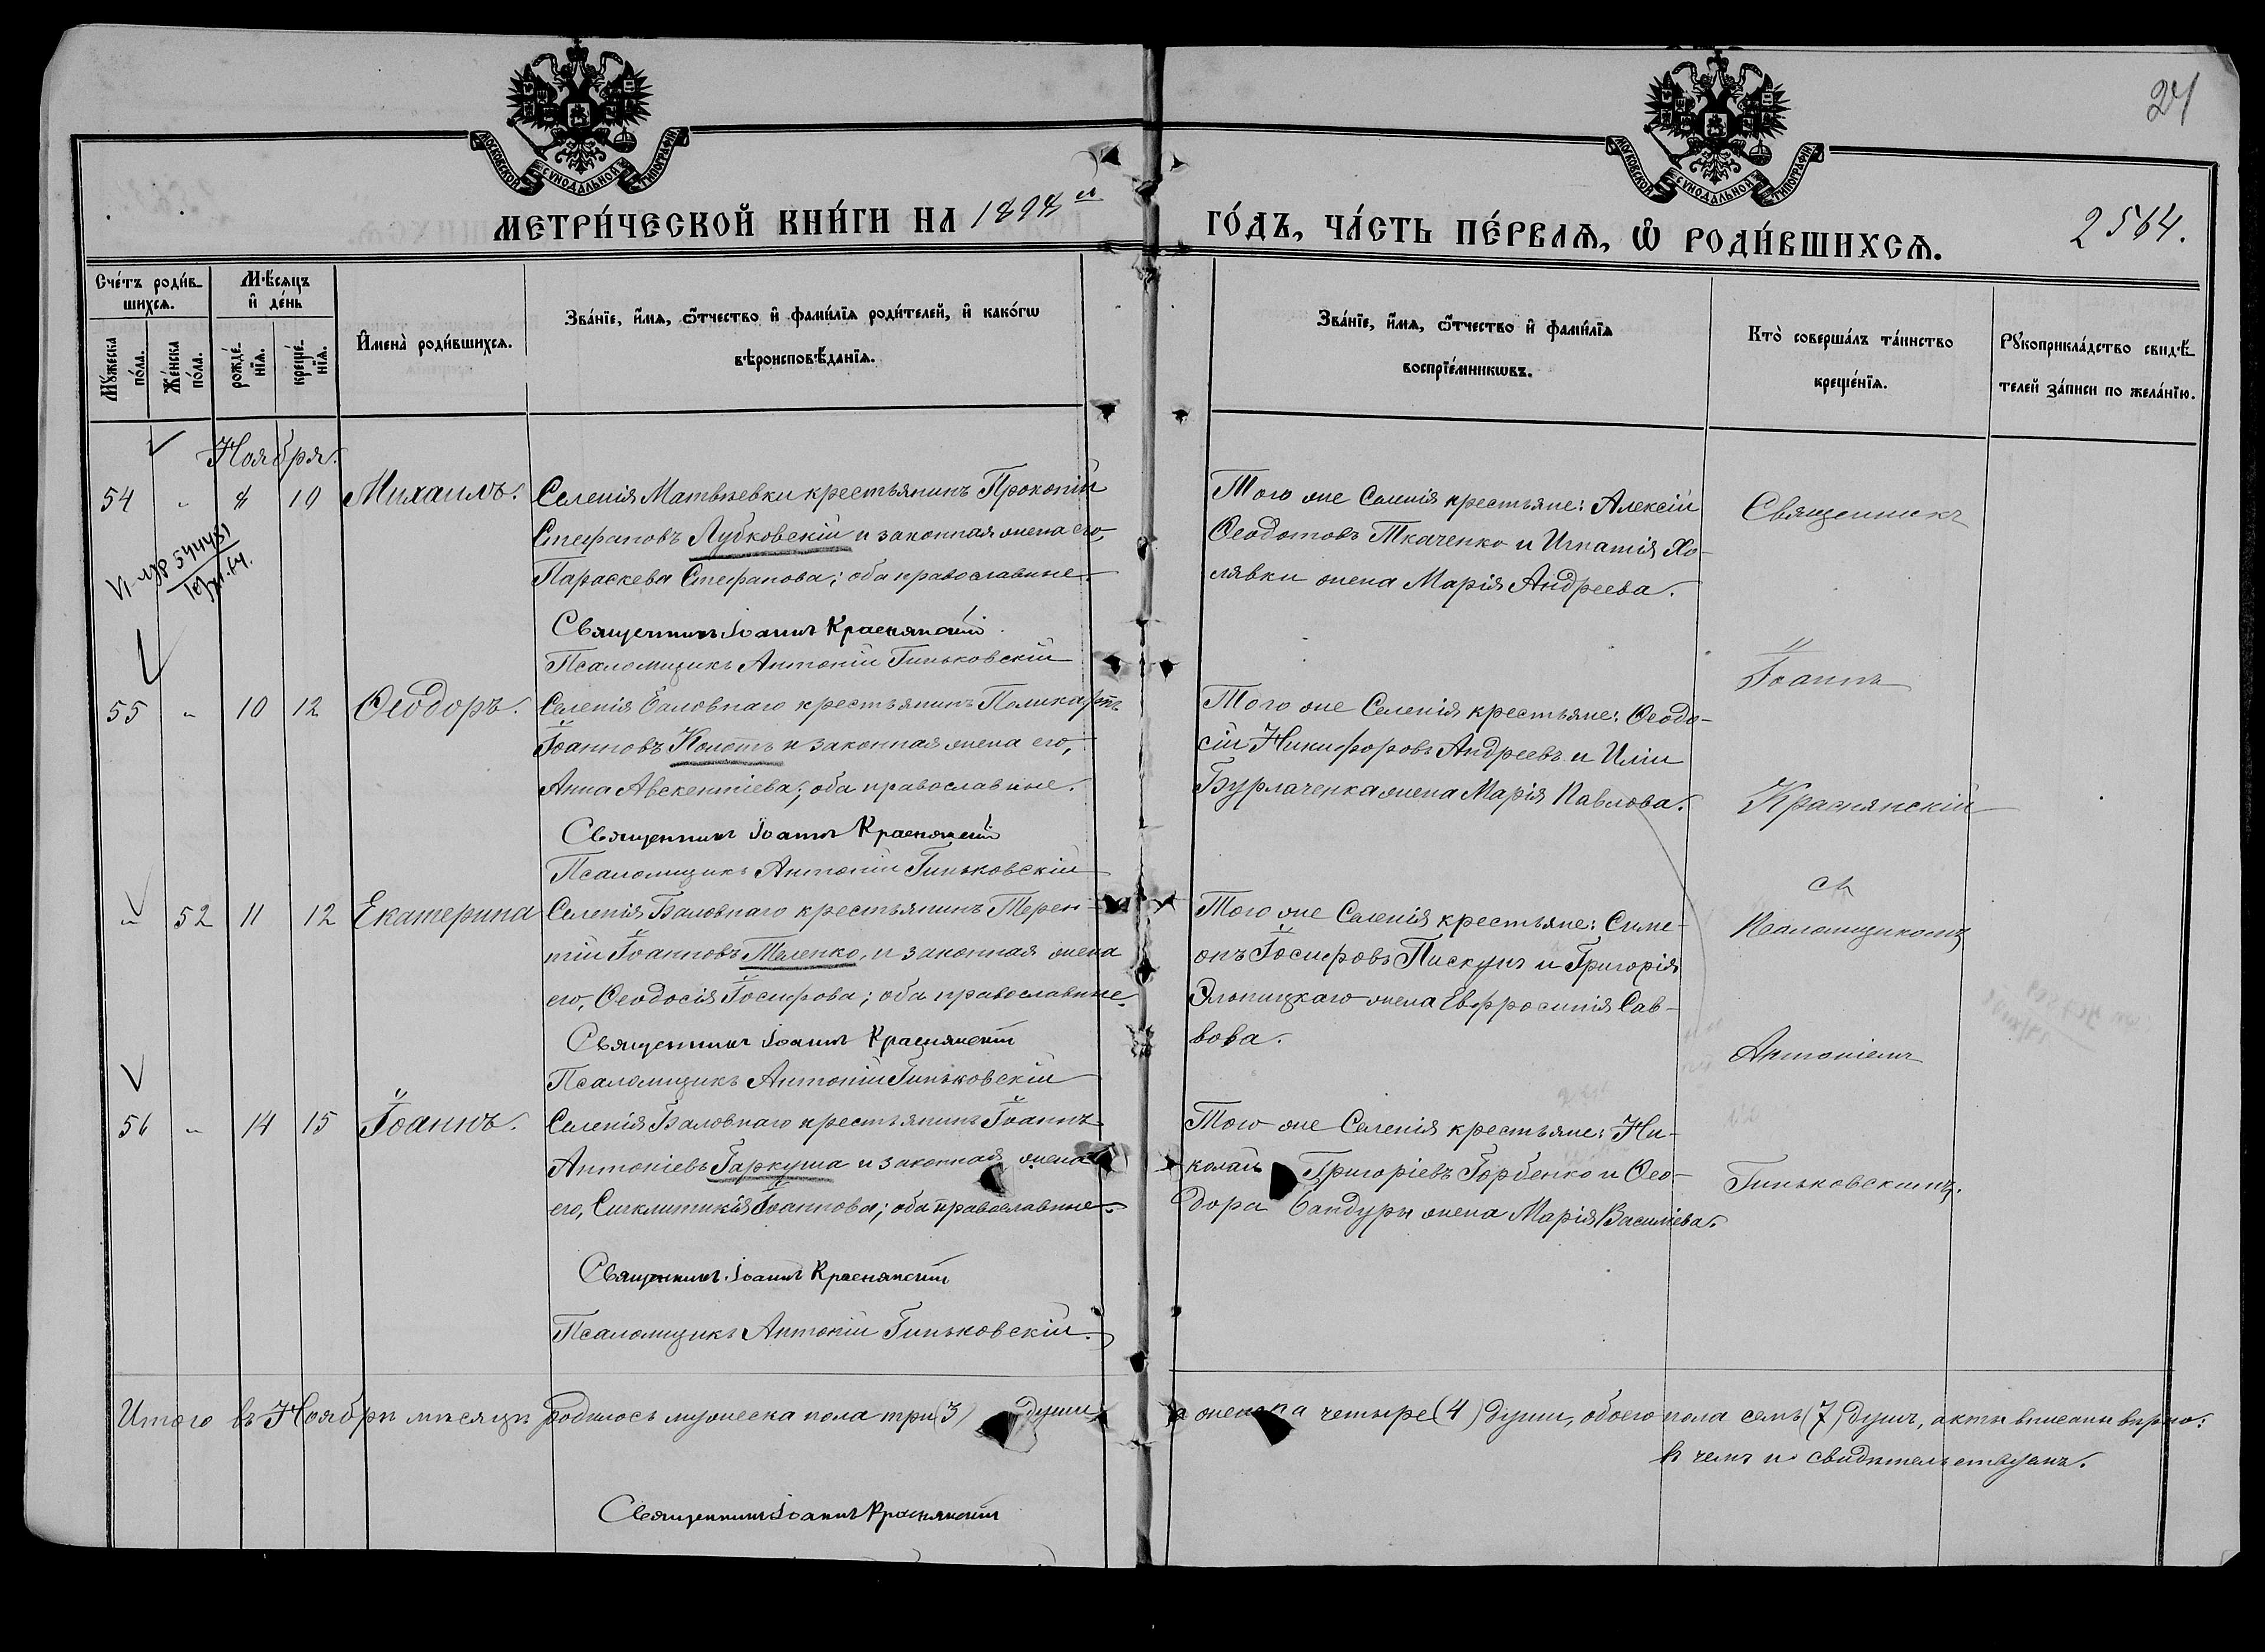 24
МОСКОВСКОЙ СѴНОДАЛЬНОЙ ТИПОГРАФІИ
МОСКОВСКОЙ СѴНОДАЛЬНОЙ ТИПОГРАФІИ
МЕТРИ́ЧЕСКОЙ КНИ́ГИ НА 1898 й ГО́ДЪ, ЧА́СТЬ ПЕ́РВАѦ, Ѡ҆ РОДИ́ВШИХСѦ.
2564.
Сче́тъ роди́в-
шихсѧ.
Мꙋ́жеска по́ла.
Же́нска по́ла.
Мѣ́сѧцъ
и҆ де́нь
рожде́нїѧ.
креще́нїѧ.
И҆мена̀ роди́вшихсѧ.
Зва́нїе, и҆́мѧ, ѻ҆́тчество и҆ фами́лїѧ роди́телей, и҆ како́гѡ
вѣроисповѣ́данїѧ.
Зва́нїе, и҆́мѧ, ѻ҆́тчество и҆ фами́лїѧ
воспрїе́мникѡвъ.
Кто̀ соверша́лъ та́инство
креще́нїѧ.
Рꙋкоприкла́дство свидѣ́-
телей за́писи по жела́нїю.
Ноября.
54 " 8 10 Михаилъ.
Селенія Матвѣевки крестьянинъ Прокопій
Стефановъ Лубковскій и законная жена его,
Параскева Стефанова; оба православные.
Священникъ Іоаннъ Краснянскій.
Псаломщикъ Антоній Гиньковскій
Того же Селенія крестьяне: Алексій
Ѳеодотовъ Ткаченко и Игнатія Хо-
лявки жена Марія Андреева.
55 " 10 12 Ѳеодоръ.
Селенія Баловнаго крестьянинъ Поликарпъ
Іоанновъ и законная жена его,
Анна Авксентіева; оба православные.
Священникъ Іоаннъ Краснянскій
Псаломщикъ Антоній Гиньковскій
Того же Селенія крестьяне: Ѳеодо-
сій Никифоровъ Андреевъ и Иліи
Бурлаченка жена Марія Павлова.
" 52 11 12 Екатерина
Селенія Баловнаго крестьянинъ Терен-
тій Іоанновъ Теленко, и законная жена
его, Ѳеодосія Іосифова; оба православные.
Священникъ Іоаннъ Краснянскій
Псаломщикъ Антоній Гиньковскій
Того же Селенія крестьяне: Симе-
онъ Іосифовъ Пискунъ и Григорія
жена Евфросинія Сав-
вова.
56 " 14 15 Іоаннъ.
Селенія Баловнаго крестьянинъ Іоаннъ
Антоніевъ Гаркуша и законная жена
его, Сигклитикія Іоаннова; оба православные.
Священникъ Іоаннъ Краснянскій
Псаломщикъ Антоній Гиньковскій.
Того же Селенія крестьяне: Ни-
колай Григоріевъ Горбенко и Ѳео-
дора Бандуры жена Марія Василіева.
Священникъ
Іоаннъ
Краснянскій
съ
Псаломщикомъ
Антоніемъ
Гиньковскимъ.
Итого въ Ноябрѣ мѣсяцѣ родилось мужеска пола три (3) души, а женска четыре (4) души, обоего пола семь (7) душъ, акты вписаны вѣрно:
въ чемъ и свидѣтельствуемъ.
Священникъ Іоаннъ Краснянскій